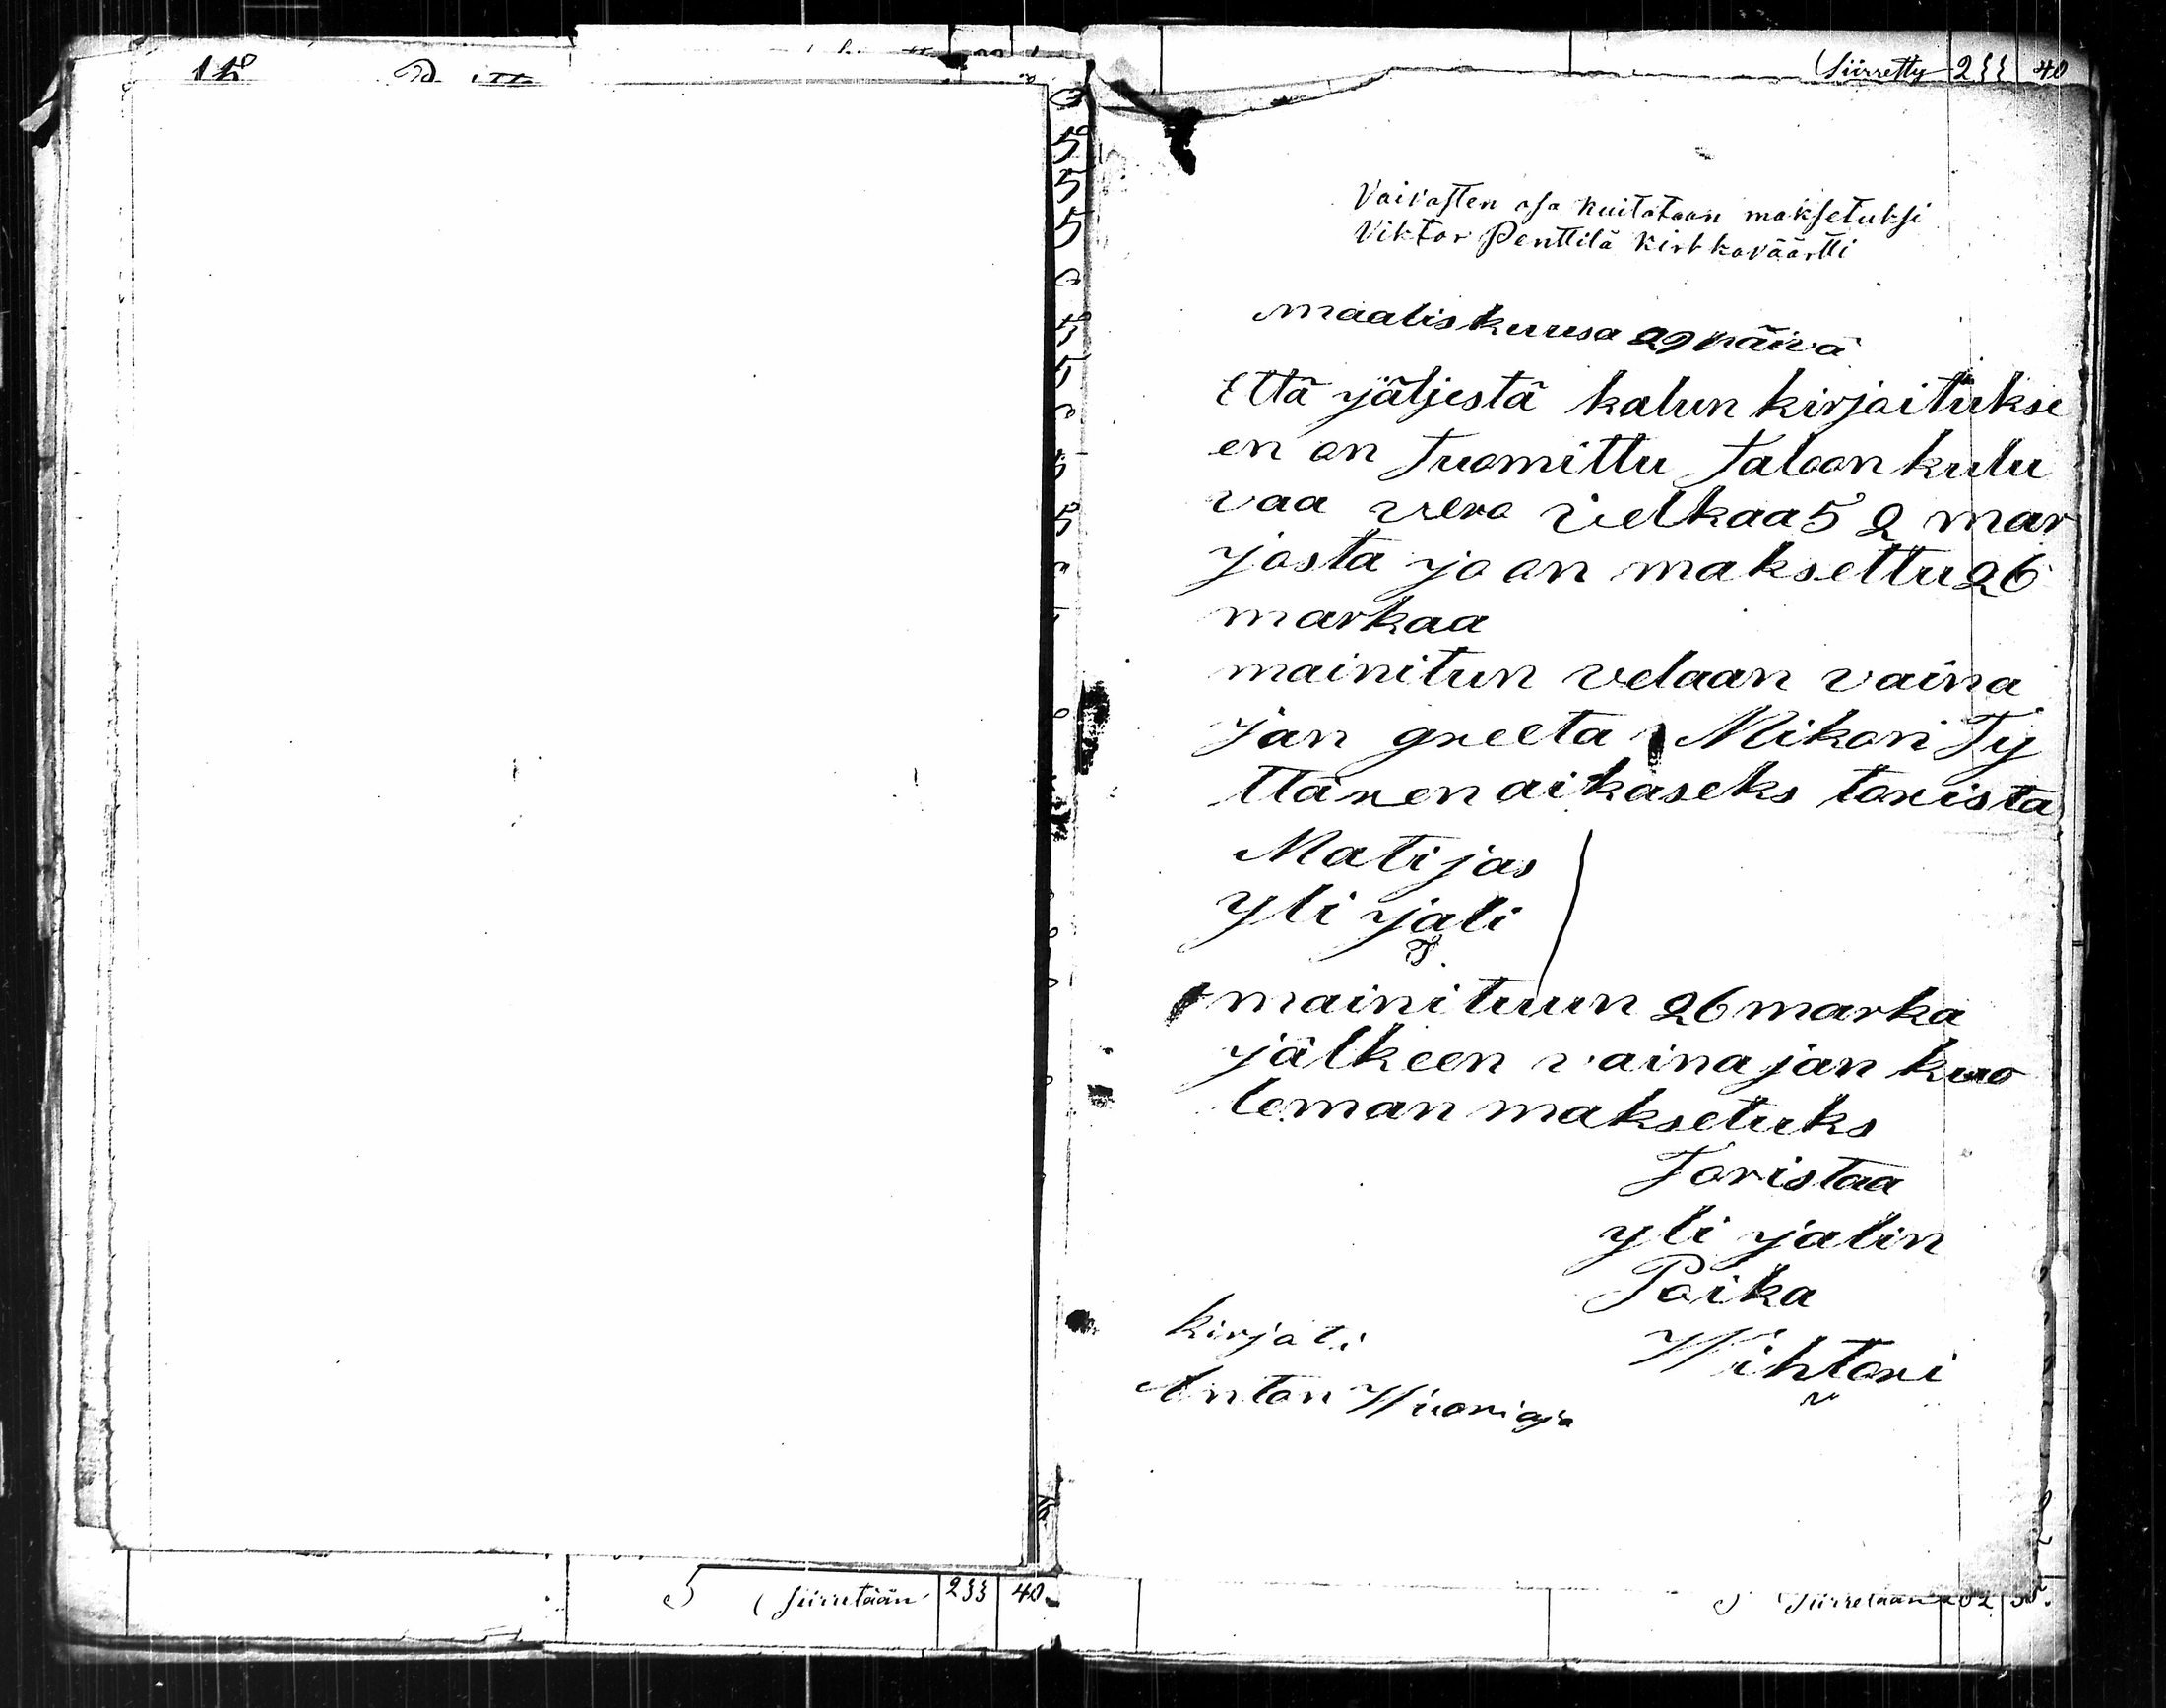 Siirretty 233 40
Vaivasten osa kuitataan maksetuksi
Viktor Penttilä Kirkkoväärtti
maaliskuusa 29 päivä
Että yäljestä kalun kirjoitukse
en on Tuomittu Taloon kulu
vaa vero velkaa 52 mar
josta jo on maksettu 26
markaa
mainitun velaan vaina
jan greeta Mikon Ty
ttären aikaseks torista
Matijas
yli jali
mainituun 26 marka
jälkeen vainajan kuo
leman maksetuks
Toristaa
yli jalin
Poika
Wihtori
kirjoti
Anton Wuorioja
Siirretään 233 40
Siirretään